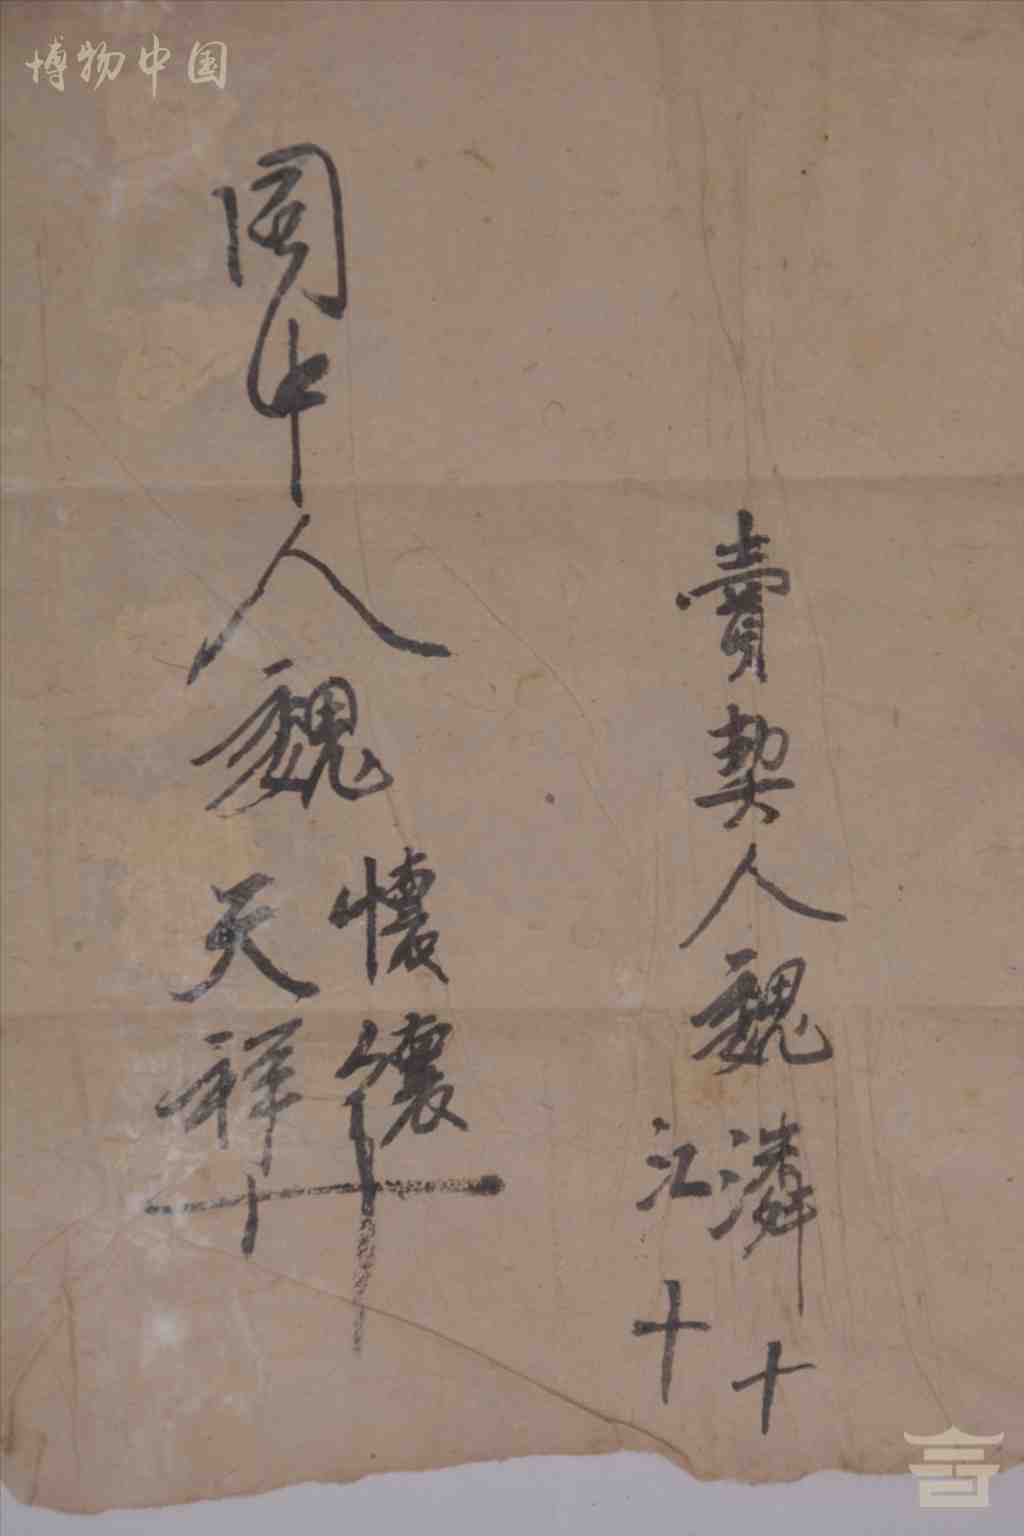 博物中国
賣契人魏潾十
江十
同中人魏懷儴十
天祥十